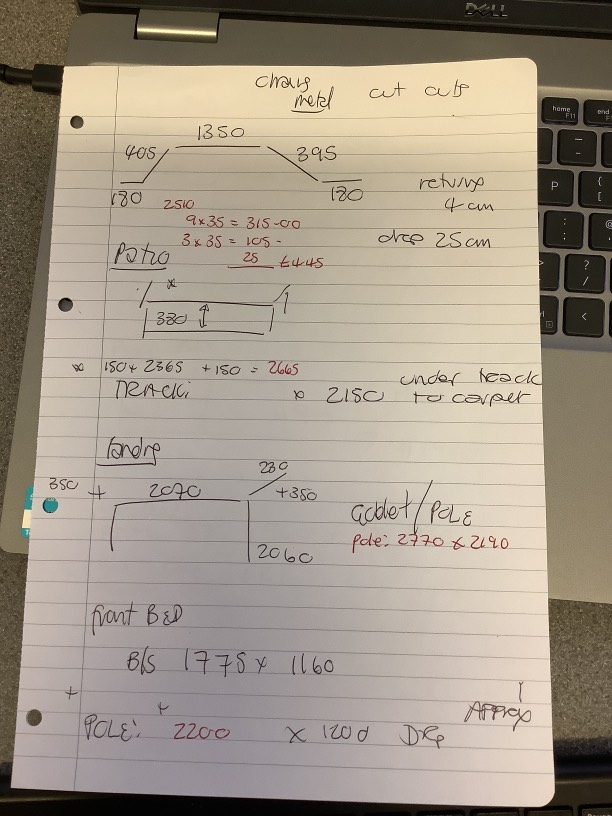 DELL
metal
cut
1350
405
395
180
180
returns
4cm
2510
9x35 = 315-00
3x35 = 105-
25 £445
drop 25cm
Patio
x
380
x 150 + 2365 + 150 = 2665
TRACK:
x 2150 under track
to carpet
230
350 + 2070 +350
Goblet/POLE
pole: 2770 x 2190
2060
front BED
B/S 1775 x 1160
+
+
Approx
POLE: 2200 x 1200 DRP
home
F11
end
P
{
[
:
;
?
/
<